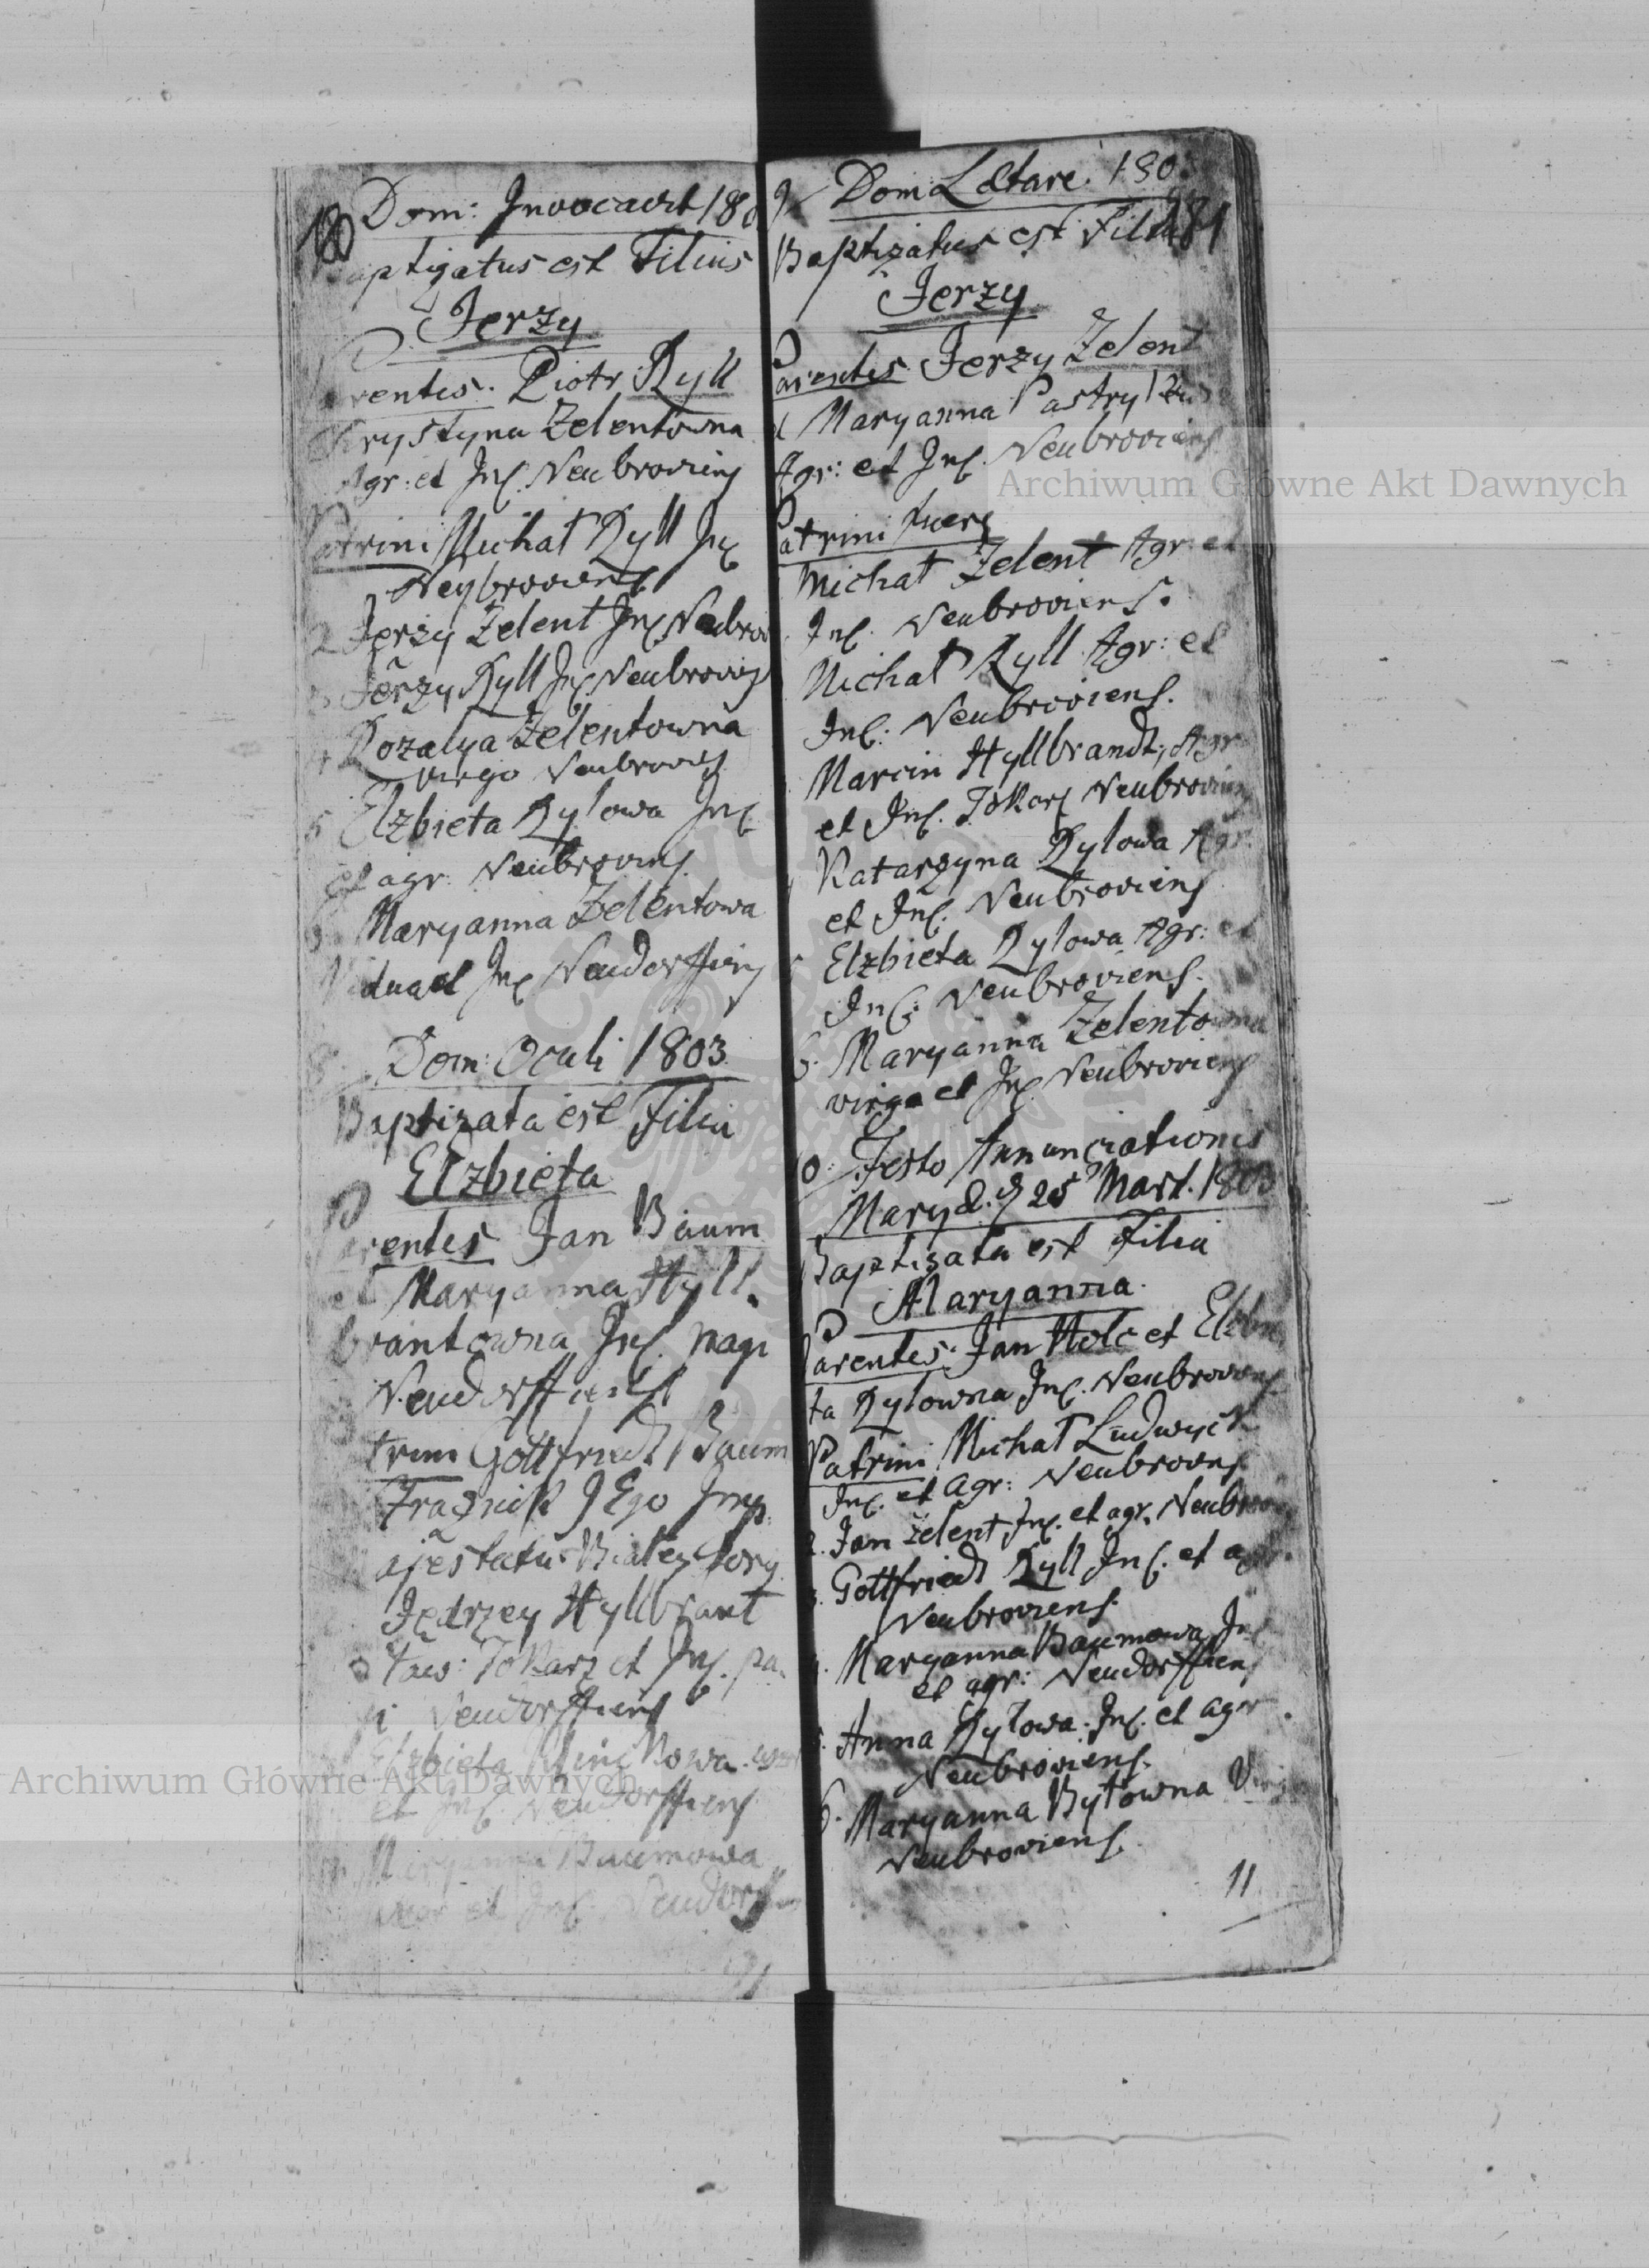 180
Dom: Invocavit 180
Baptizatus est Filius
Jerzy
Parentes: Piotr Ryll
Krystyna Zelentowna
Agr: et Inq. Neubroviens
Patrini Michał Ryll Inq
Neybroviens
2 Jerzy Zelent Inq Neubrov
3 Jerzy Ryll Inq Neubroviens
4 Rozalya Zelentowna
virgo Neubroviens
5 Elzbieta Rylowa Inq
et agr: Neubroviens
6 Maryanna Zelentowa
Vidua et Inq Neudorffiens
8. Dom: Oculi 1803.
Baptizata est Filia
Elzbieta
Parentes Jan Baum
et Maryanna Hyll-
brantowna Inq. pagi
Neudorffiens
trini Gottfriedt Baum
JEgo Imp.
ajestatu
Jędrzey Hyllbrant
Tokarz et Inq. pa-
gi Neudorffiens
Elzbieta
et Inq. Neudorffiens
Maryanna Baumowa
et Inq. Neudorff
9 Dom: Lætare. 180
181
Baptizatus est Filius
Jerzy
Parentes Jerzy Zelent
et Maryanna
Agr: et Inq. Neubroviens
Patrini fuere
Michał Zelent Agr: et
Inq. Neubroviens.
Michał Ryll Agr: et
Inq: Neubroviens.
Marcin Hyllbrandt, Agr
et Inq. Tokarz Neubroviens
Katarzyna Rylowa Agr:
et Inq. Neubroviens
5 Elzbieta Rylowa Agr: et
Inq: Neubroviens.
6. Maryanna Zelentowna
virgo et Inq Neubroviens
10. Festo Annunciationis
Mary d. 25 Mart. 1803
Baptizata est Filia
Maryanna.
Parentes: Jan Holc et Elzbie
ta Rylowna Inq. Neubroviens
Patrini Michał Ludwyck
Inq. et agr: Neubroviens
2. Jan Zelent Inq. et agr. Neubrov
3. Gottfriedt Ryll Inq. et agr.
Neubroviens.
4. Maryanna Baumowa Inq
et agr: Neudorffiens
5. Anna Rylowa. Inq. et agr
Neubroviens.
6. Maryanna Rylowna Virgo
Neubroviens.
11
Archiwum Główne Akt Dawnych
Archiwum Główne Akt Dawnych